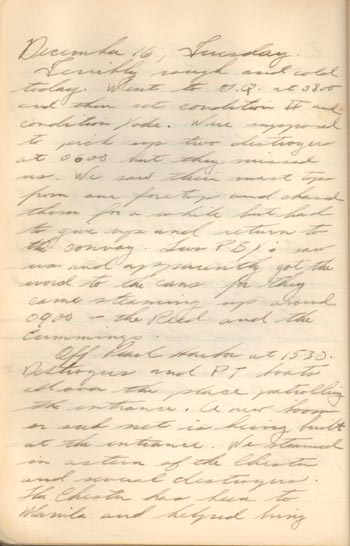 December 16, Tuesday.
Terribly rough and cold
today. Went to G.Q. at 0800
and then set condition II and
condition Jode. We're supposed
to pick up two destroyers
at 0600 but they missed
us. We saw their mast tops
from our foretop and chased
them for a while but had
to give up and return to
the convoy. Two PBY's saw
us and apparently got the
word to the cans for they
came steaming up around
0900 - the Reed and the
Cummings.
Off Pearl Harbor at 1530.
Destroyers and PT boats
all over the place patrolling
the entrance. A new boom
or sub net is being built
at the entrance. We steamed
in astern of the Chester
and several destroyers.
The Chester has been to
Manila and helped bring